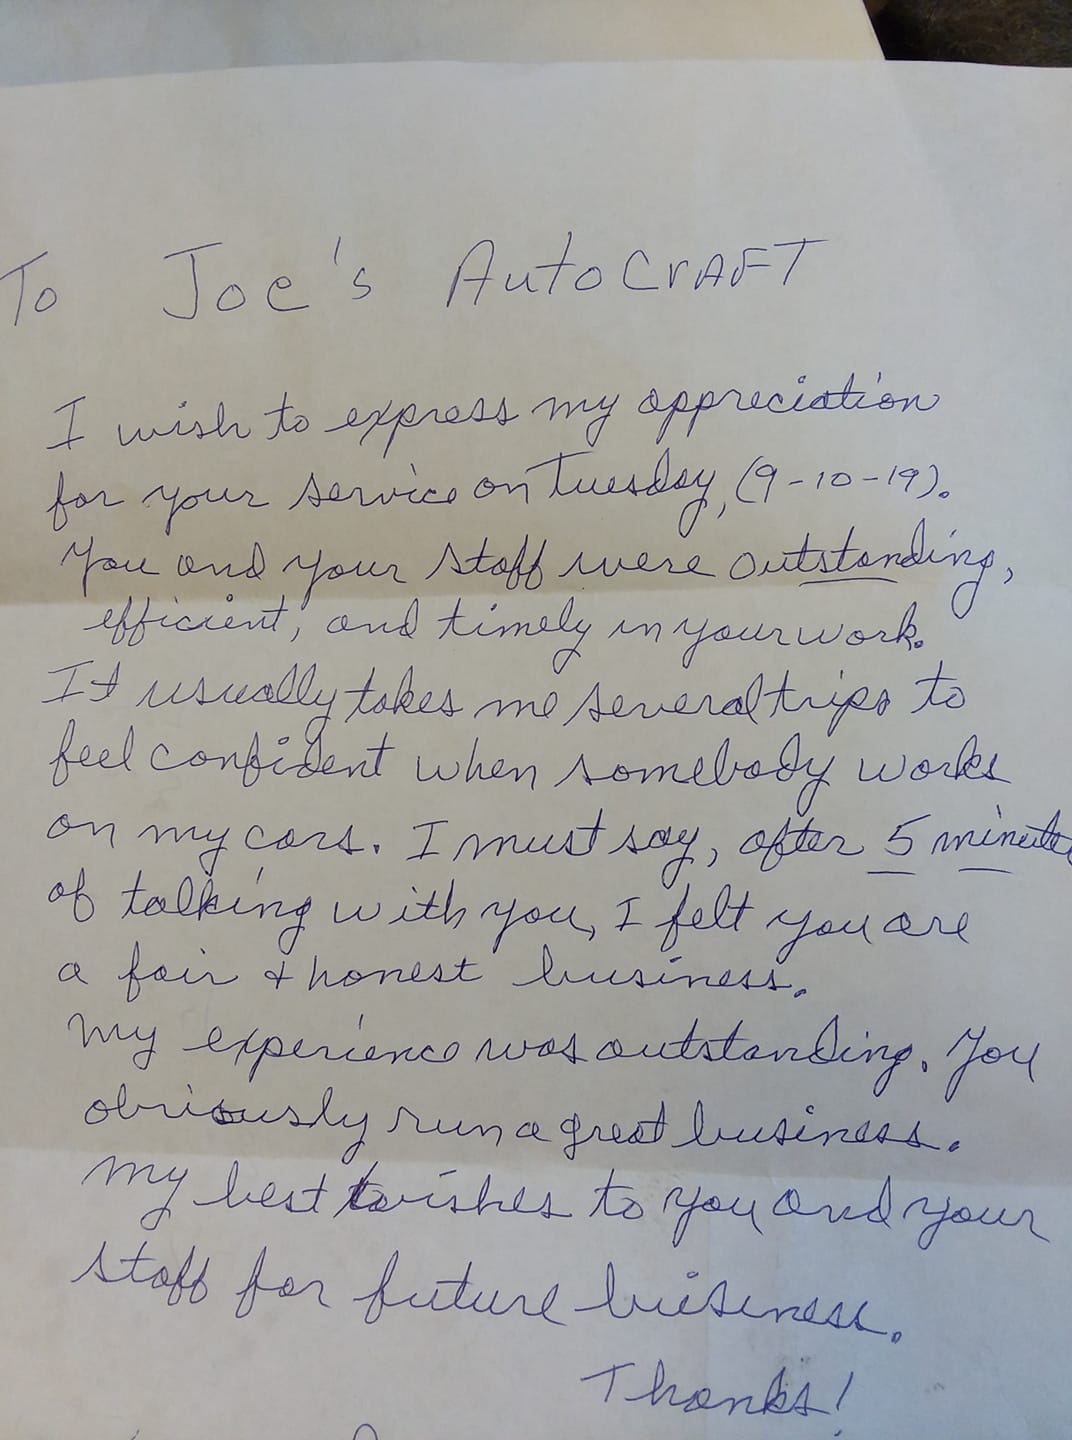 To Joe's AutoCrAFT
I wish to express my appreciation
for your service on Tuesday, (9-10-19).
You and your staff were outstanding,
efficient, and timely in your work.
It usually takes me several trips to
feel confident when somebody works
on my cars. I must say, after 5 minutes
of talking with you, I felt you are
a fair + honest business.
My experience was outstanding. You
obviously run a great business.
My best wishes to you and your
staff for future business.
Thanks!